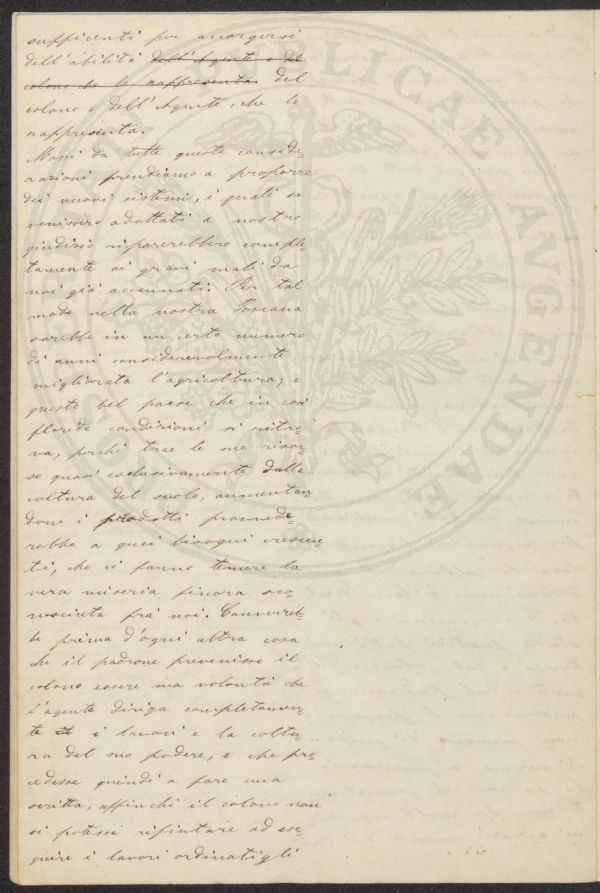 sufficienti per accorgersi
dell'abilità dell'Agente e del
colono che lo rappresenta. del
colono e dell'Agente, che lo
rappresenta.
Mossi da tutte queste conside=
razioni prendiamo a proporre
dei nuovi sistemi, i quali se
venissero adottati a nostro
giudizio riparerebbero comple=
tamente ai gravi mali da
noi già accennati. Per tal
modo nella nostra Toscana
sarebbe in un certo numero
di anni considerevolmente
migliorata l'agricoltura, e
questo bel paese che in così
floride condizioni si ritro=
va, perchè trae le sue risor=
se quasi esclusivamente dalla
coltura del suolo, aumentan
done i prodotti provvede=
rebbe a quei bisogni crescen=
ti, che ci fanno temere la
vera miseria fincora sco=
nosciuta frà noi. Converreb=
be prima d'ogni altra cosa
che il padrone prevenisse il
colono essere sua volontà che
l'agente diriga completamen=
te i lavori e la coltu=
ra del suo podere, e che pro=
cedesse quindi a fare una
scritta, affinchè il colono non
si potesse rifiutare ad ese=
guire i lavori ordinatigli
PUBLICAE AUGENDAE